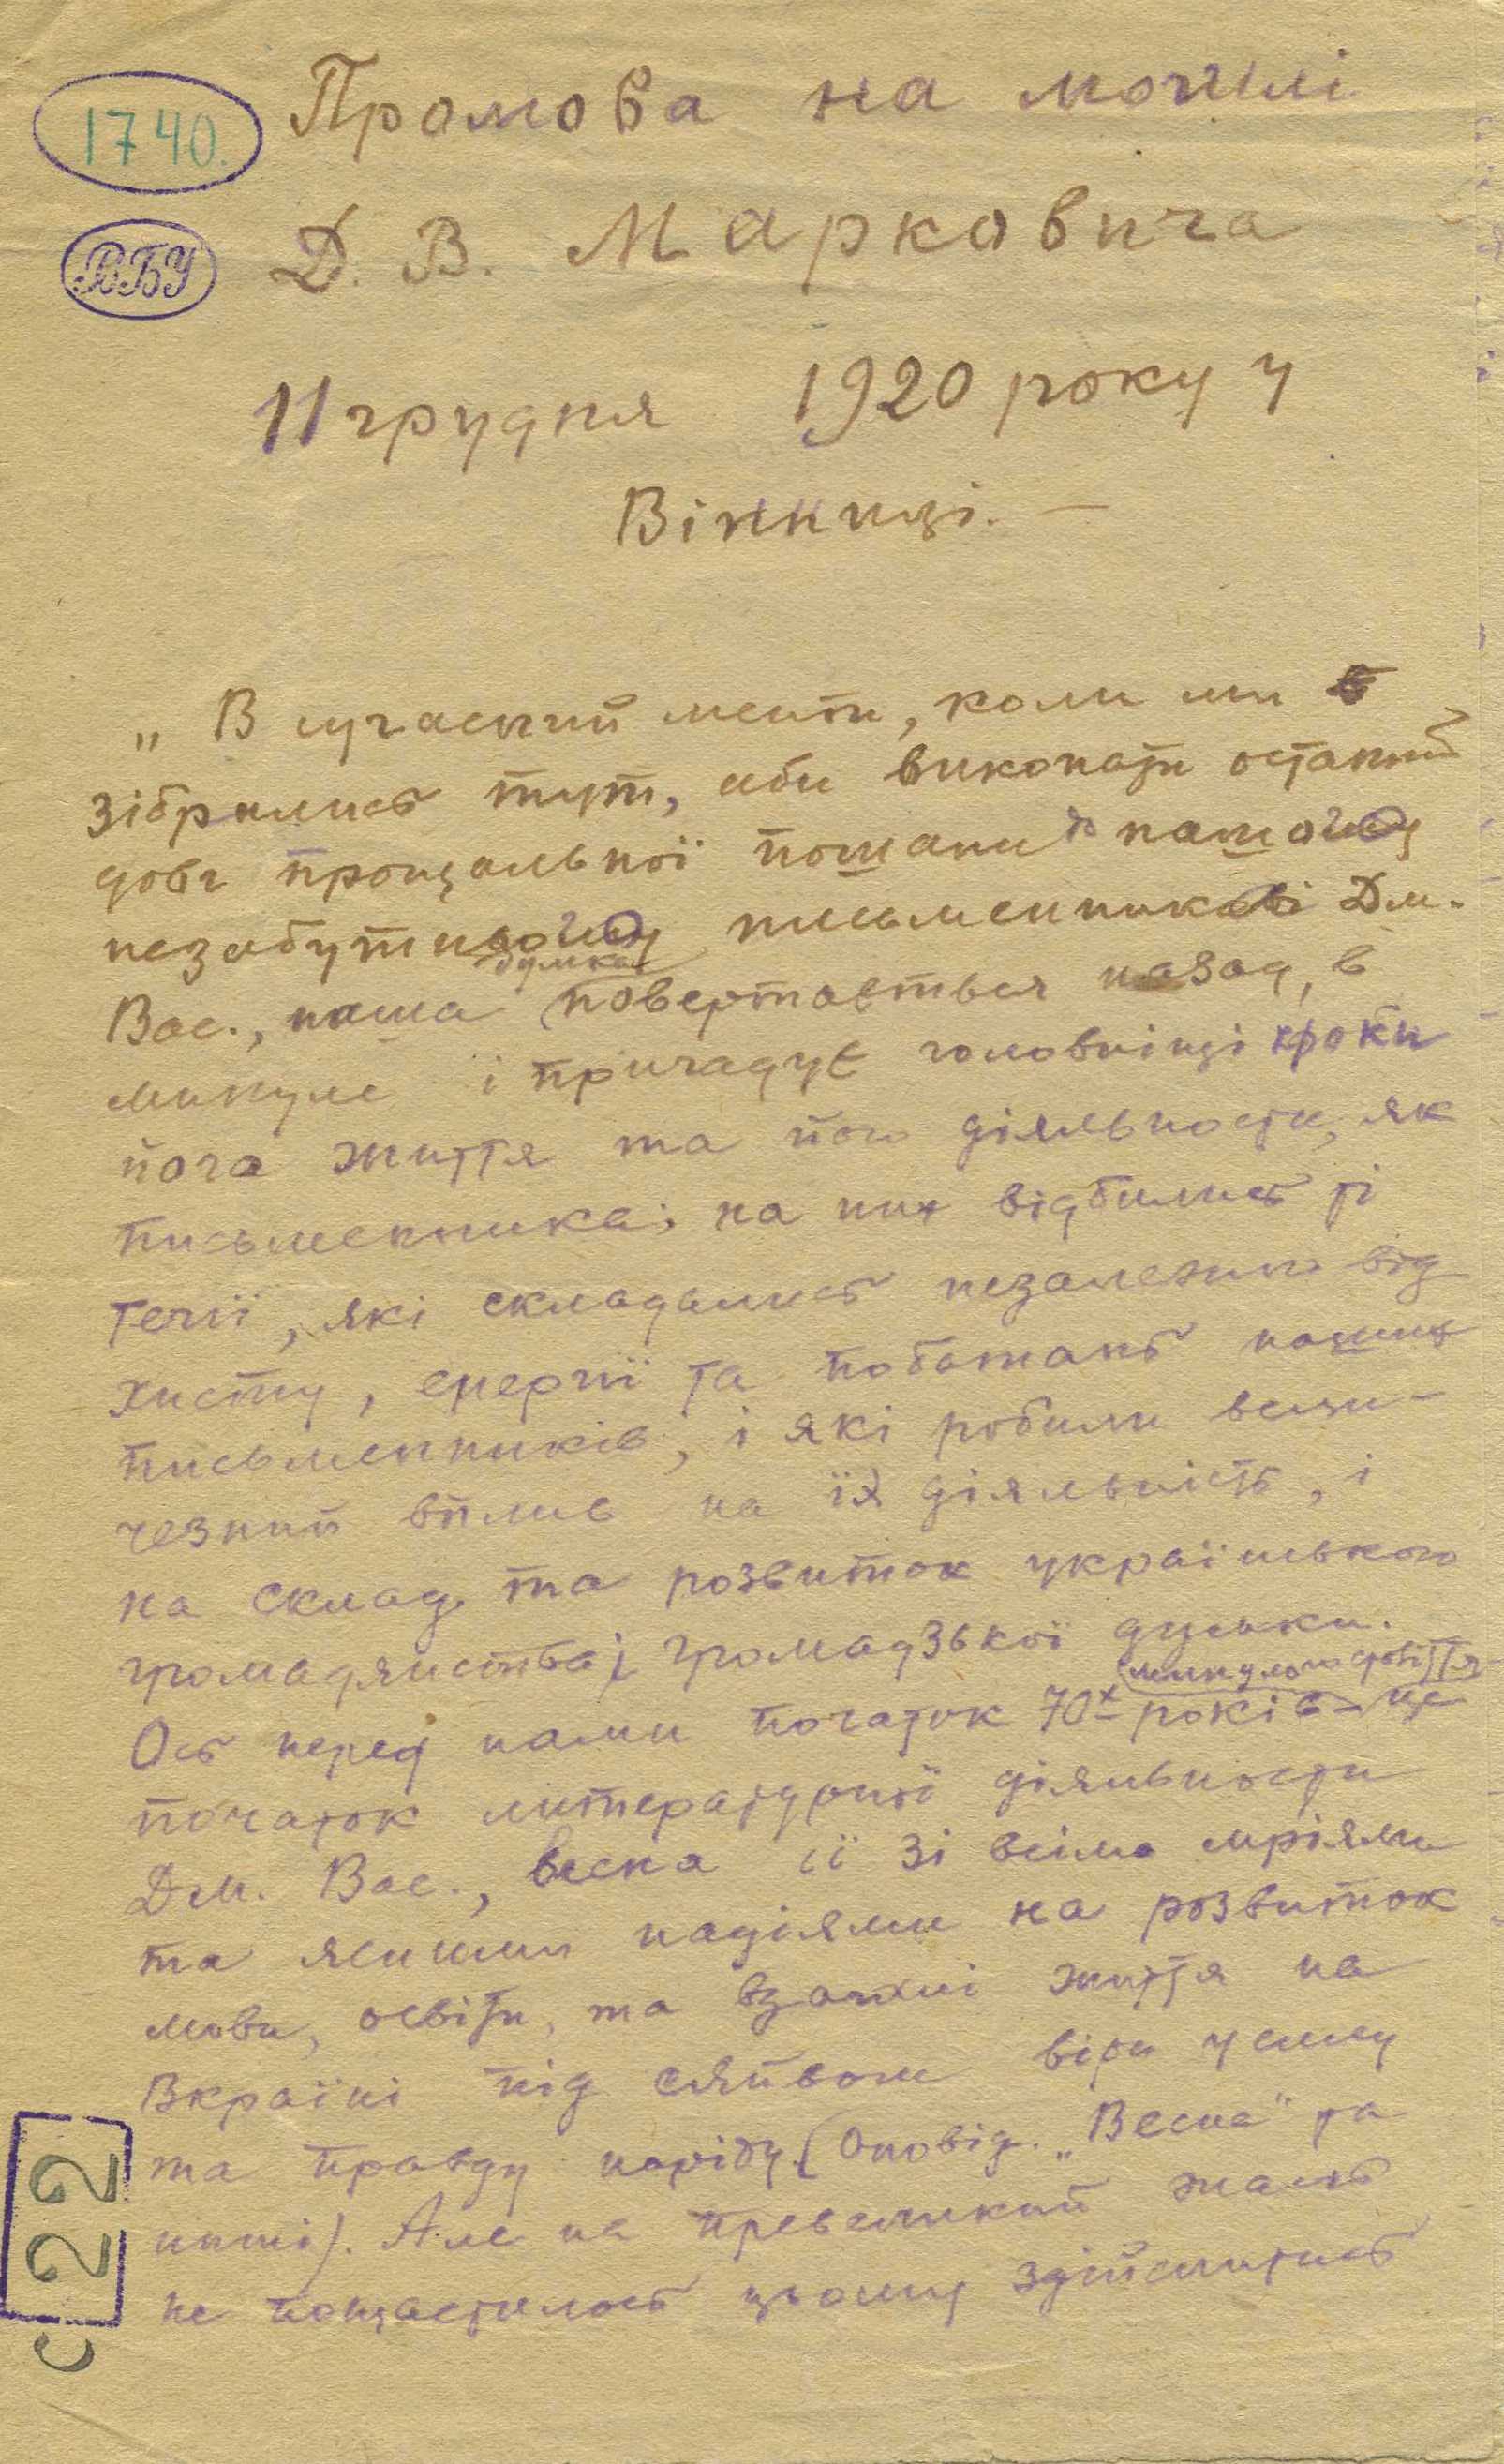 1740.
Промова на могилі
ВБУ
Д. В. Марковича
11 грудня 1920 року у
Вінниці. —
„В сучасний менти, коли ми
зібрались тут, аби виконати останній
довг прощальної пошани до нашого
незабутнього письменника Дм.
думка
Вас., наша повертається назад, в
минуле і пригадує головніщі кроки
його життя та його діяльности, як
письменника; на них відбились ті
течії, які складались незалежно від
хисту, енергії та побажань наших
письменників, і які робили вели-
чезний вплив на їх діяльність, і
на склад та розвиток українського
громадянства і громадзької думки.
минулого століття
Ось перед нами початок 70х років – це
початок литературної діяльности
Дм. Вас., весна її зі всіма мріями
та ясними надіями на розвиток
мови, освіти, та взагалі життя на
Вкраїні під сяйвом віри у силу
та правду народу (Оповід. „Весна" та
инші). Але на превеликий жаль
не пощастилось цьому здійснитись
С 22